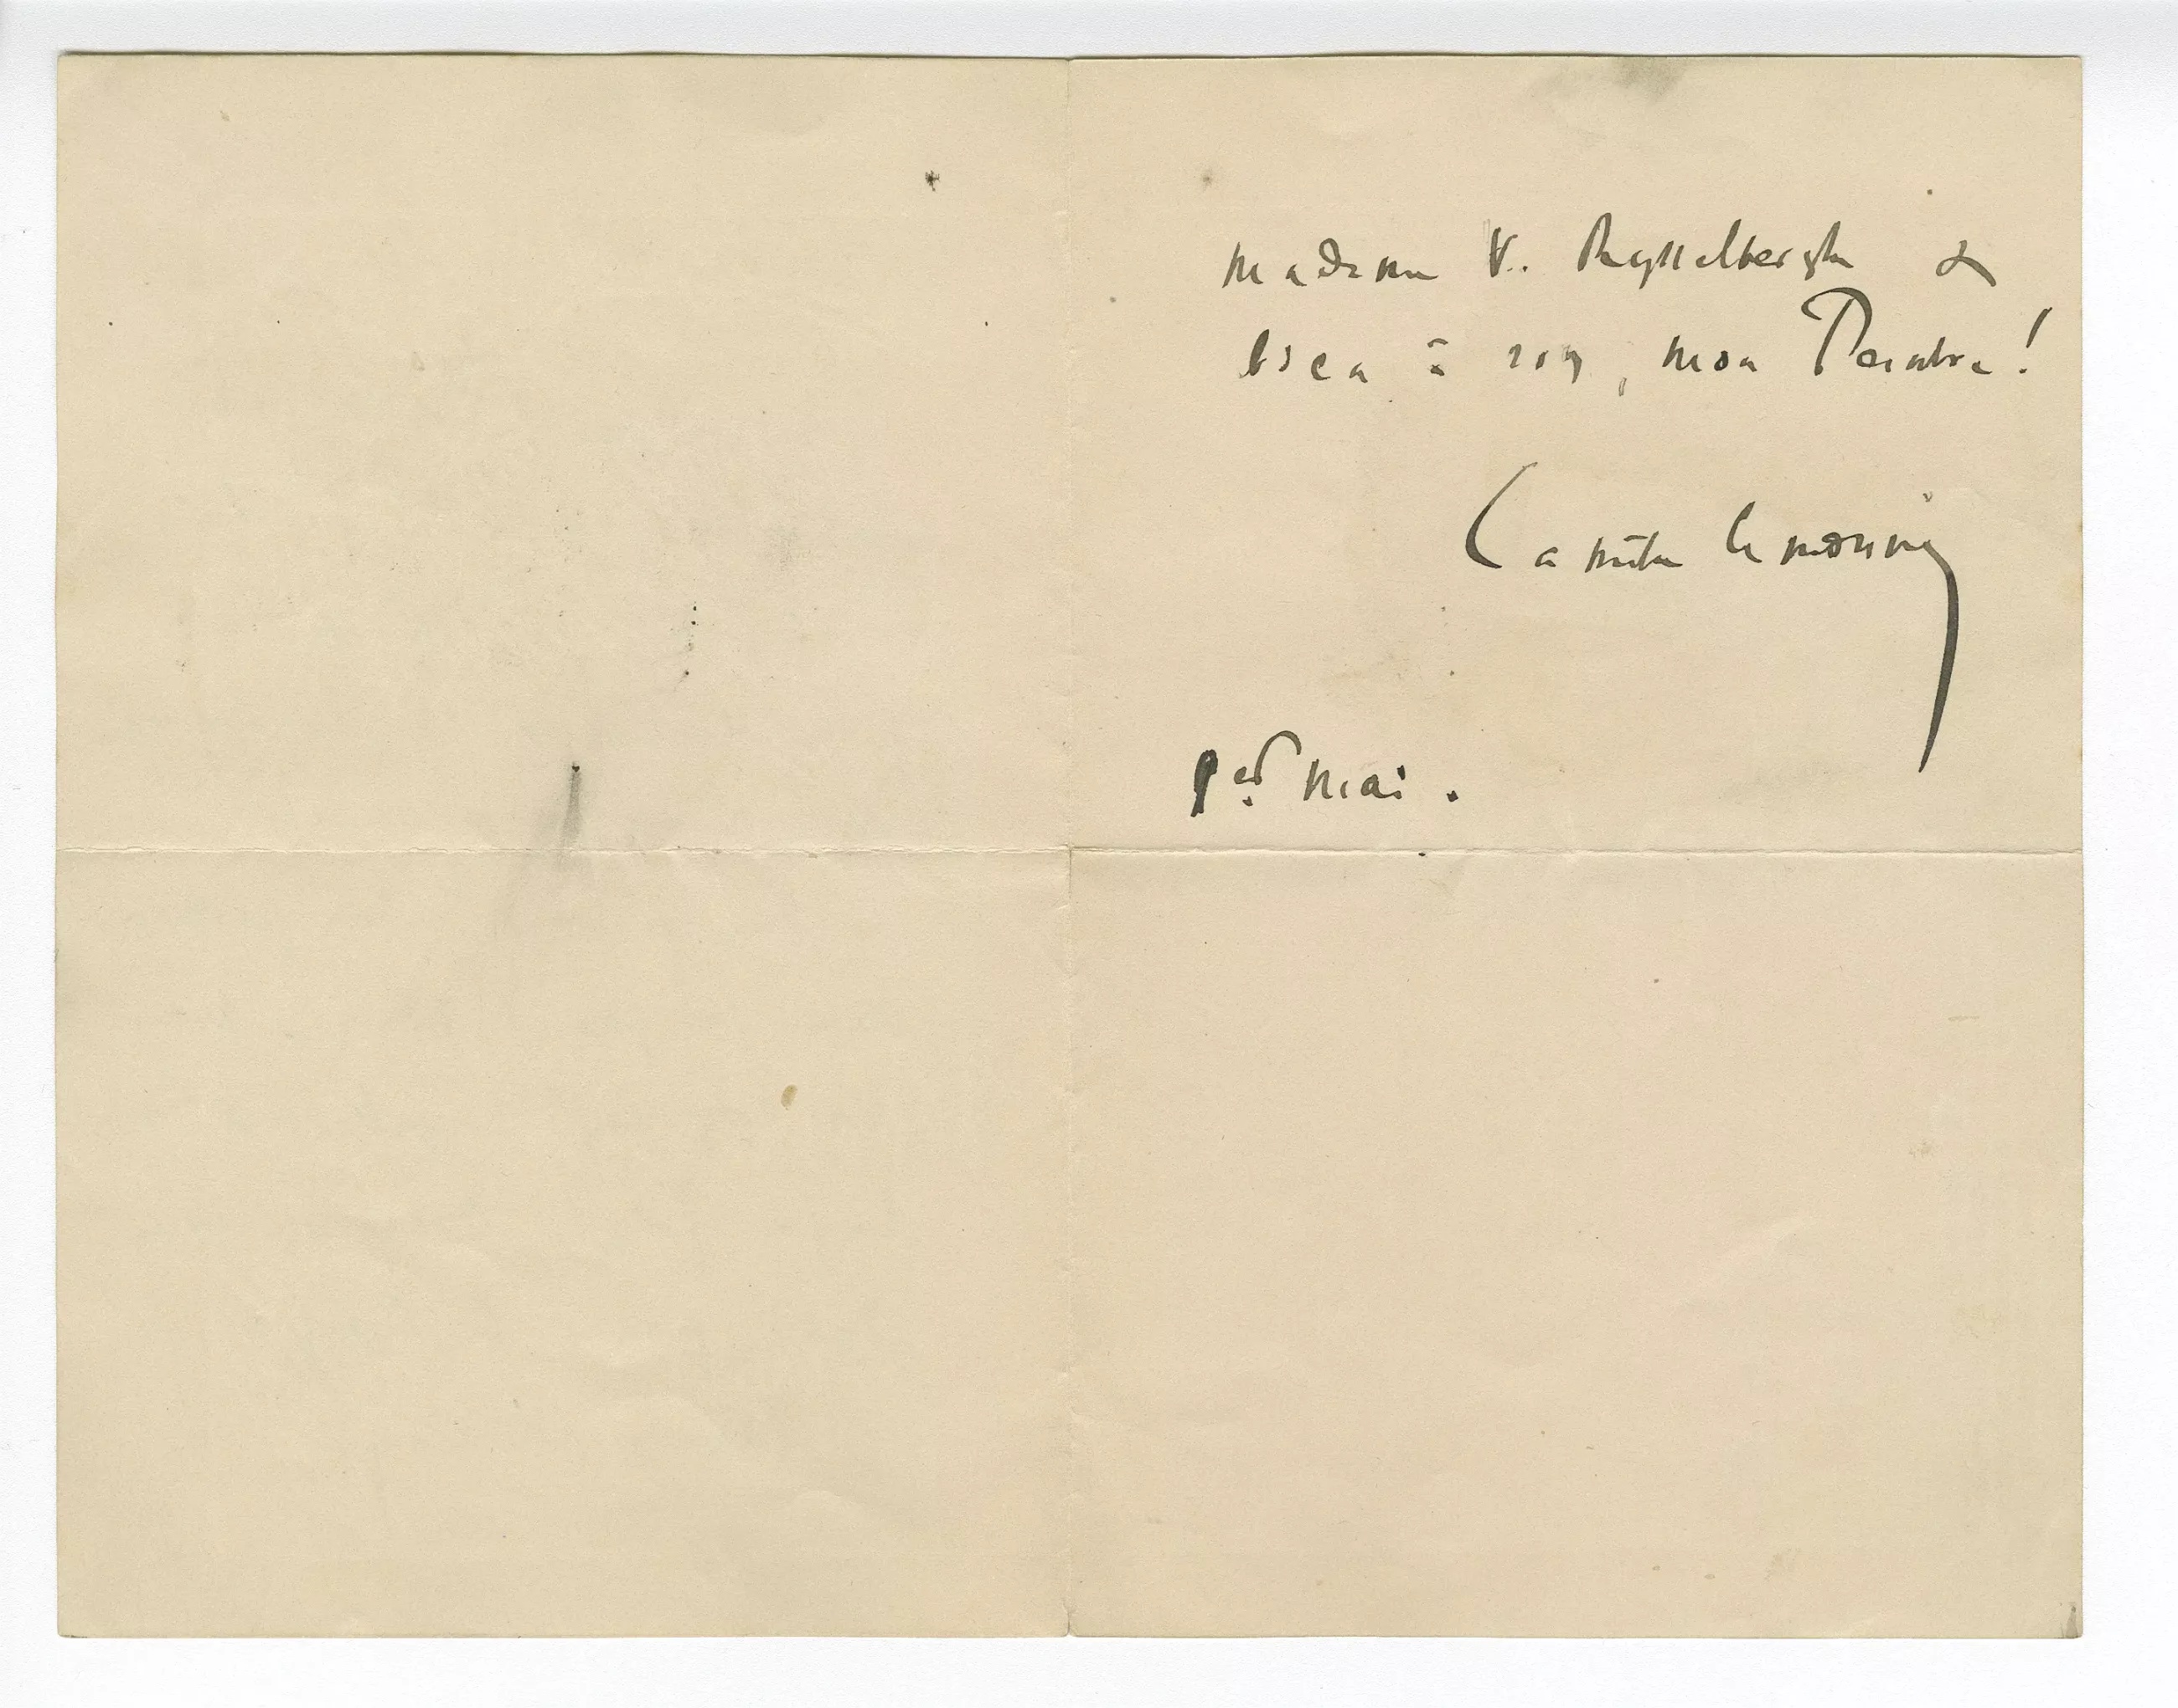 Madame V. Rysselberghe &
bien à vous, mon Peintre!
Camille Lemonnier
1er mai.